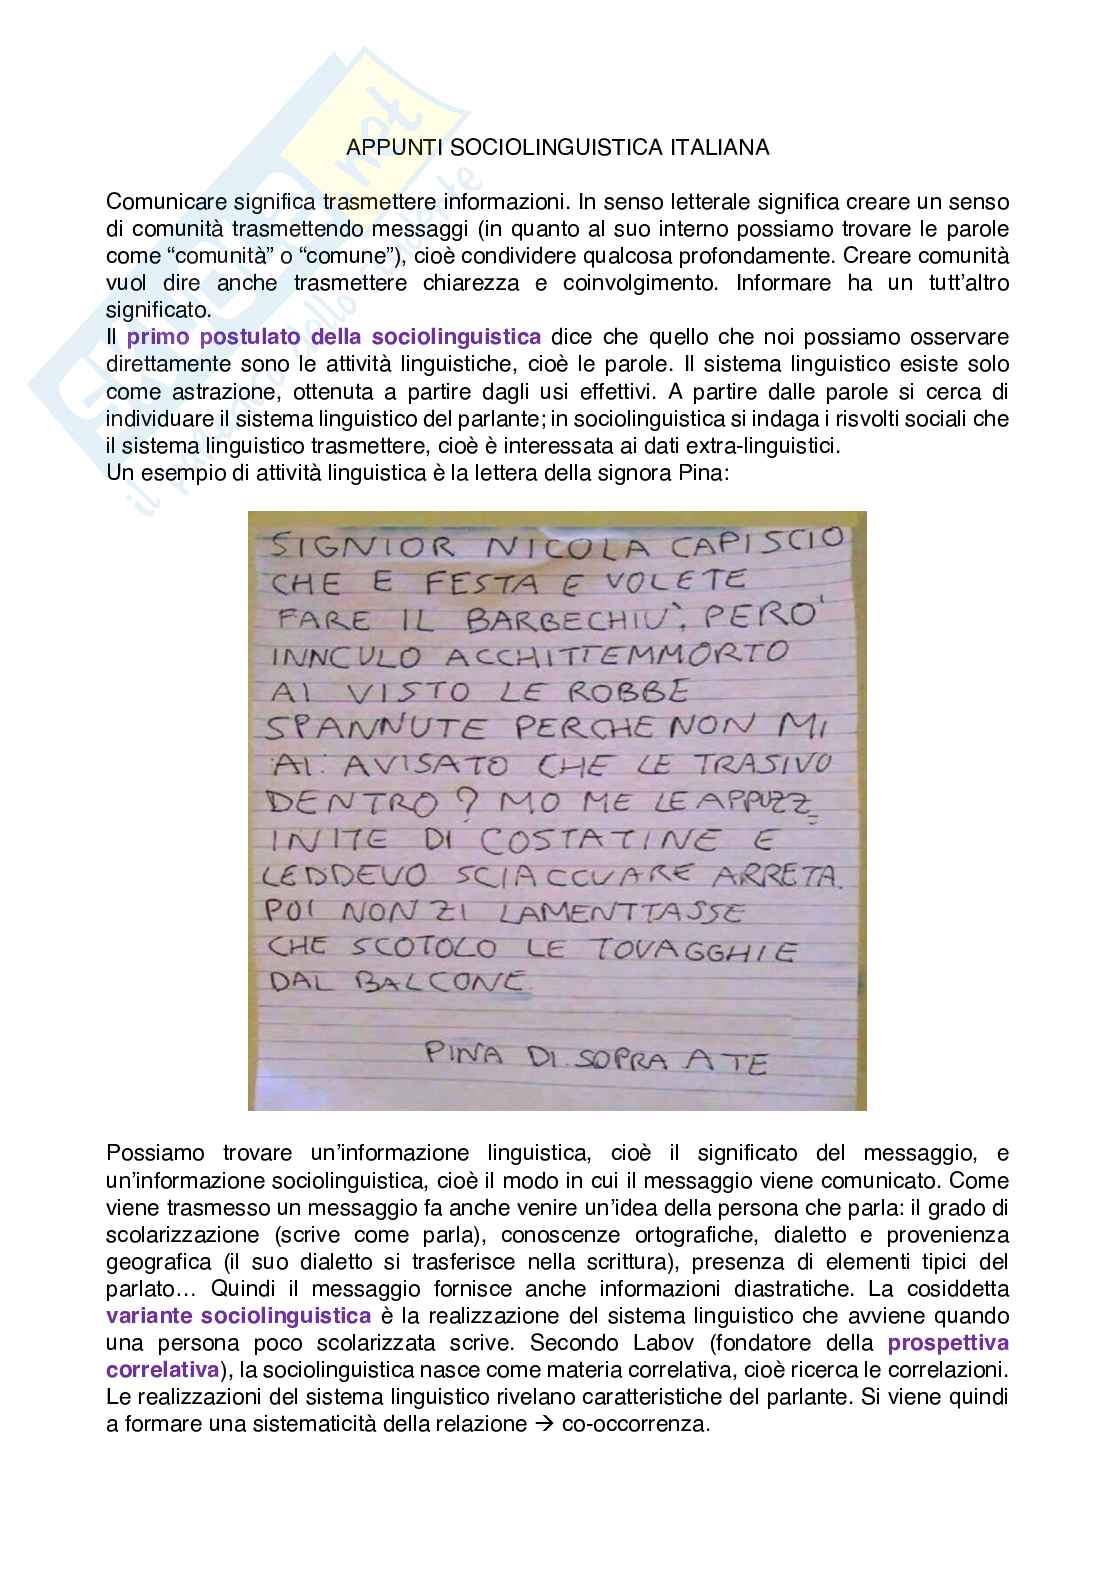 APPUNTI SOCIOLINGUISTICA ITALIANA
Comunicare significa trasmettere informazioni. In senso letterale significa creare un senso
di comunità trasmettendo messaggi (in quanto al suo interno possiamo trovare le parole
come “comunità” o “comune”), cioè condividere qualcosa profondamente. Creare comunità
vuol dire anche trasmettere chiarezza e coinvolgimento. Informare ha un tutt’altro
significato.
Il primo postulato della sociolinguistica dice che quello che noi possiamo osservare
direttamente sono le attività linguistiche, cioè le parole. Il sistema linguistico esiste solo
come astrazione, ottenuta a partire dagli usi effettivi. A partire dalle parole si cerca di
individuare il sistema linguistico del parlante; in sociolinguistica si indaga i risvolti sociali che
il sistema linguistico trasmettere, cioè è interessata ai dati extra-linguistici.
Un esempio di attività linguistica è la lettera della signora Pina:
SIGNIOR NICOLA CAPISCIO
CHE E FESTA E VOLETE
FARE IL BARBECHIU', PERO'
INNCULO ACCHITTEMMORTO
AI VISTO LE ROBBE
SPANNUTE PERCHE NON MI
AI AVISATO CHE LE TRASIVO
DENTRO? MO ME LE APPUZZ
INITE DI COSTATINE E
LEDDEVO SCIACCUARE ARRETA.
POI NON ZI LAMENTTASSE
CHE SCOTOLO LE TOVAGGHIE
DAL BALCONE.
PINA DI SOPRA A TE
Possiamo trovare un’informazione linguistica, cioè il significato del messaggio, e
un’informazione sociolinguistica, cioè il modo in cui il messaggio viene comunicato. Come
viene trasmesso un messaggio fa anche venire un’idea della persona che parla: il grado di
scolarizzazione (scrive come parla), conoscenze ortografiche, dialetto e provenienza
geografica (il suo dialetto si trasferisce nella scrittura), presenza di elementi tipici del
parlato… Quindi il messaggio fornisce anche informazioni diastratiche. La cosiddetta
variante sociolinguistica è la realizzazione del sistema linguistico che avviene quando
una persona poco scolarizzata scrive. Secondo Labov (fondatore della prospettiva
correlativa), la sociolinguistica nasce come materia correlativa, cioè ricerca le correlazioni.
Le realizzazioni del sistema linguistico rivelano caratteristiche del parlante. Si viene quindi
a formare una sistematicità della relazione → co-occorrenza.